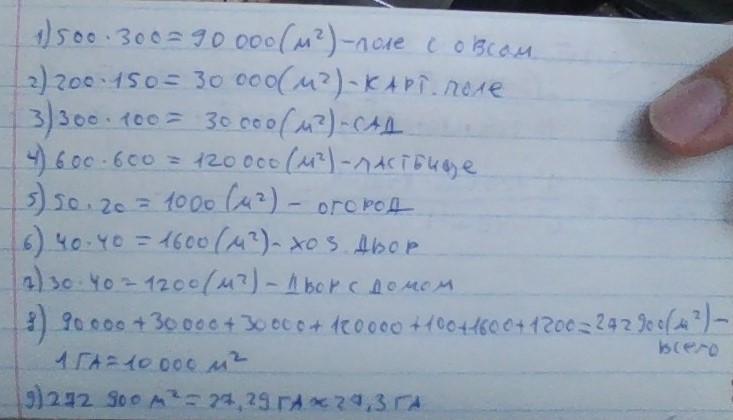 1) 500 · 300 = 90 000 (м²) - поле с овсом
2) 200 · 150 = 30 000 (м²) - карт. поле
3) 300 · 100 = 30 000 (м²) - сад
4) 600 · 600 = 120 000 (м²) - пастбище
5) 50 · 20 = 1000 (м²) - огород
6) 40 · 40 = 1600 (м²) - хоз. двор
7) 30 · 40 = 1200 (м²) - двор с домом
8) 90000 + 30000 + 30000 + 120000 + 100 + 1600 + 1200 = 272 900 (м²) -
всего
1 га = 10 000 м²
9) 272 900 м² = 27,29 га ≈ 27,3 га